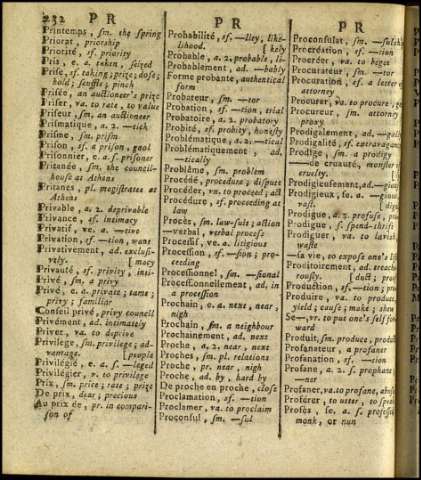 232 P R
P R
P R
Printemps, sm. the spring
Priorat, priorship
Priorité, sf. priority
Pris, e, a. taken, seized
Prise, sf. taking; prize; dose;
hold; scuffle; pinch
Prisée, an auctioneer's prize
Priser, va. to rate, to value
Priseur, sm, an auctioneer
Prismatique, a. 2. —tick
Prisme, sm. prism
Prison, sf. a prison, gaol
Prisonnier, e. a. s. prisoner
Pritanée, sm. the council-
house at Athens
Pritanes, pl. magistrates at
Athens
Privable, a. 2. deprivable
Privance, sf. intimacy
Privatif, ve. a. —tive
Privation, sf. —tion, want
Privativement, ad. exclusi-
vely. [macy
Privauté, sf. privity, inti-
Privé, sm. a privy
Privé, e. d. private; tame;
privy; familiar
Conseil privé, privy council
Privément, ad. intimately
Priver, va. to deprive
Privilege, sm. privilege; ad-
vantage. [people
Privilégié, e. a. s. —leged
Privilégier, v. to privilege
Prix, sm. price; rate; prize
De prix, dear; precious
Au prix de, pr. in compari-
son of
Probabilité, sf. —lley; like-
lihood. [kely
Probable, a. 2. probable, li-
Probablement, ad. —bably
Forme probante, authentical
form
Probateur, sm. —tor
Probation, sf. —tion, trial
Probatoire, a. 2. probatory
Probité, sf. probity, honesty
Problématique, a. 2. —tical
Problématiquement, ad.
—tically
Problème, sm. problem
Procédé, procedure; dispute
Procéder, va. to proceed; act
Procédure, sf. proceeding at
law
Procès, sm. law-suit; action
—verbal, verbal process
Processif, ve. a. litigious
Procession, sf. —sion; pro-
ceeding
Processionnel, sm. —sional
Processionnellement, ad. in
a procession
Prochain, e. a. next, near,
nigh
Prochain, sm. a neighbour
Prochainement, ad. next
Proche, a. 2. near; next
Proches, sm. pl. relations
Proche, pr. near, nigh
Proche, ad. by, hard by
De proche en proche, close
Proclamation, sf. —tion
Proclamer, va. to proclaim
Proconsul, sm. —sul
Proconsulat, sm. —sulsh
Procréation, sf. —tion
Procréer, va. to beget
Procurateur, sm. —tor
Procuration, sf. a letter o
attorney
Procurer, va. to procure; ge
Procureur, sm. attorney
proxy
Prodigalement, ad. —gally
Prodigalité, sf. extravagan
Prodige, sm. a prodigy
—de cruauté, monster
cruelty.
Prodigieusement, ad. —giou
Prodigieux, se. a. —giou
vast.
Prodigue, a. 2. profuse, pro
Prodigue, s. spend-thrift
Prodiguer, va. to lavish
waste
—sa vie, to expose one's li
Proditoirement, ad. treach
rously.
Production, sf. —tion; pr
Produire, va. to produce
yield; cause; make; shew
Se—, vr. to put one's self for
ward
Produit, sm. produce, produ
Profanateur, a profaner
Profanation, sf. —tion
Profane, a. 2. s. prophane
—ner
Profaner, va. to profane, abuse
Proférer, to utter, to speak
Profès, se, a. s. professed
monk, or nun